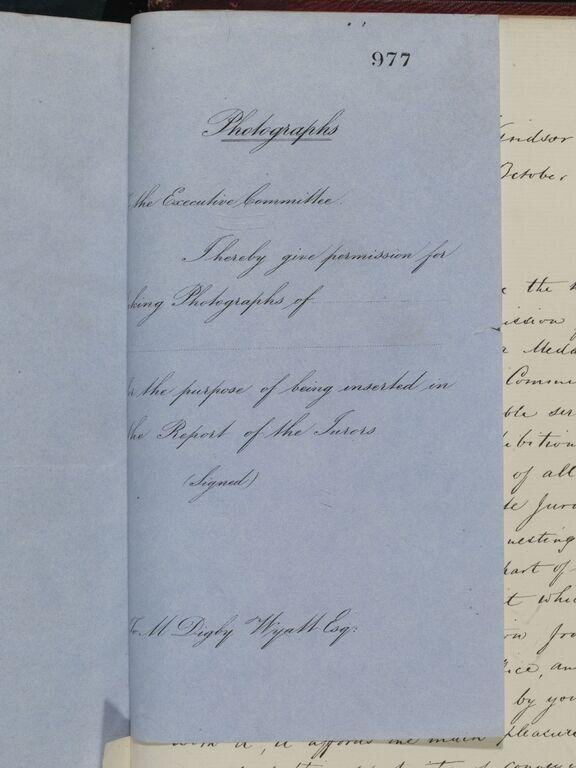 977
Photographs
the Executive Committee.
I hereby give permission for
king Photographs of
the purpose of being inserted in
he Report of the Jurors
(Signed)
To M Digby Wyatt Esq:
indsor
October
the
ission
Meda
Commi
ble ser
ibition
of all
te Juro
uesting
part of
t whic
fro
ice, an
by you
pleasure
with it, it affords me much